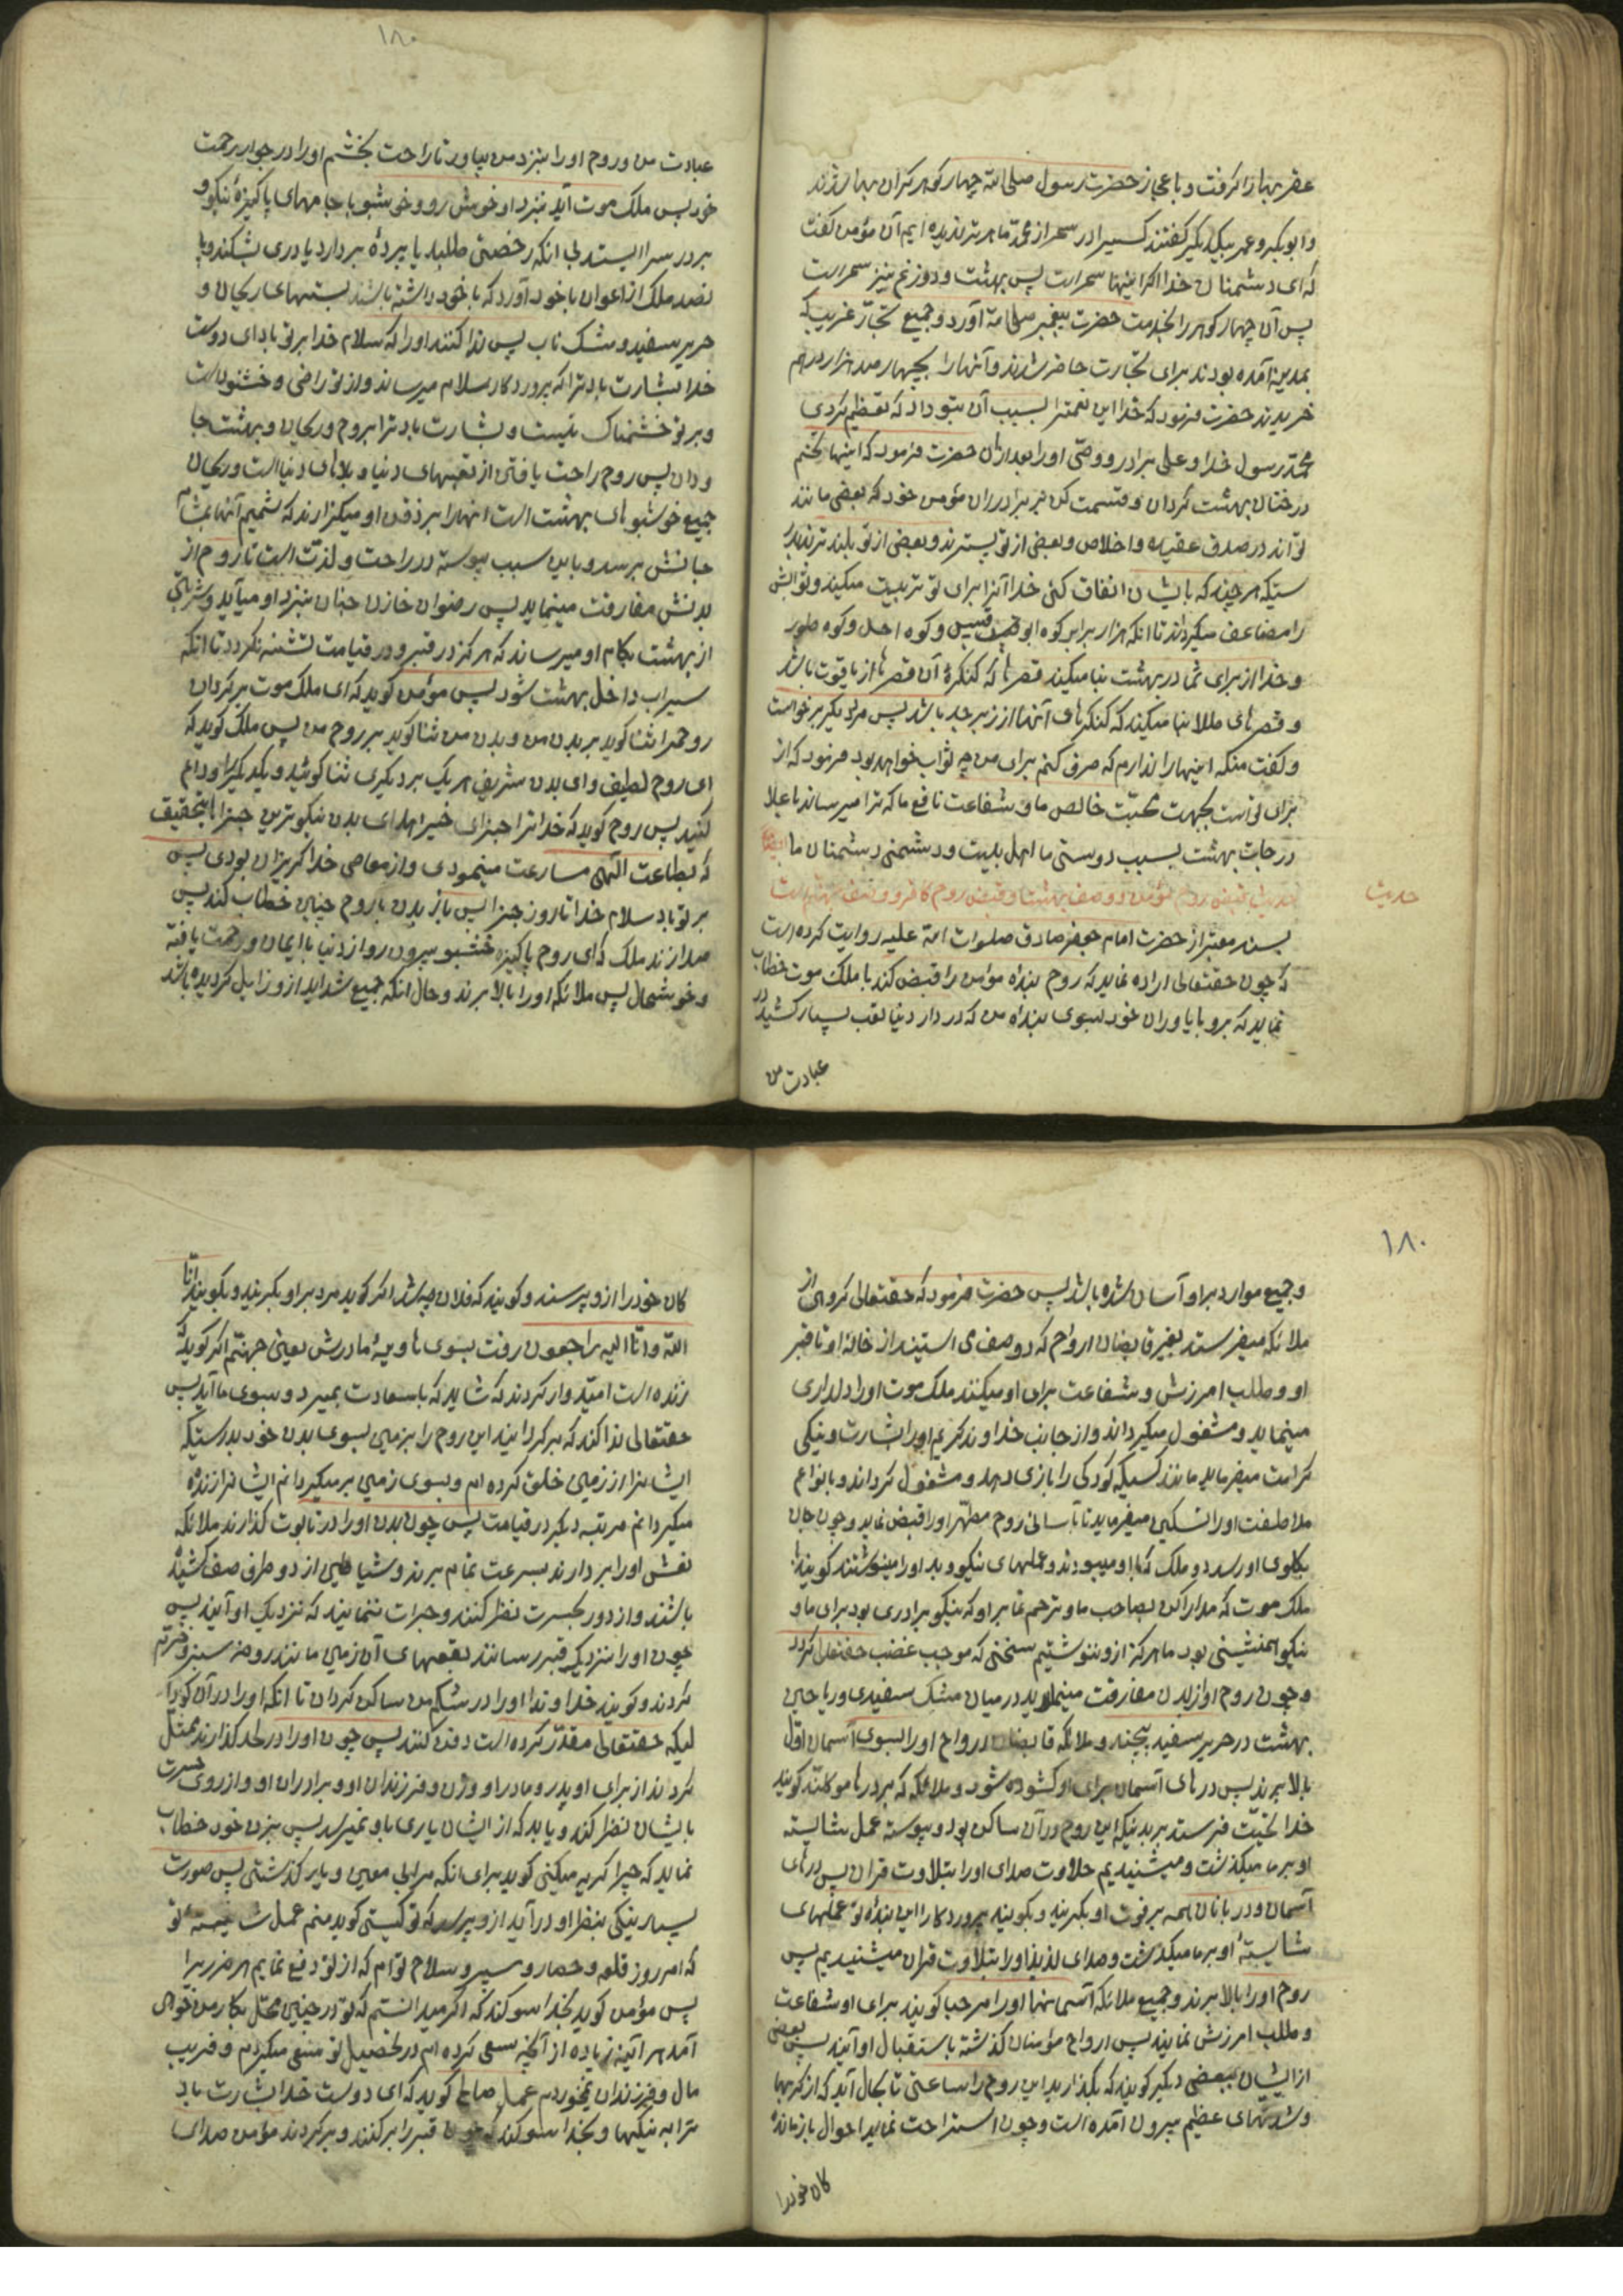 عقربها را گرفت و باعجاز حضرت رسول صلی الله چهار گوهر گران بها شدند
و ابوبکر و عمر بیکدیگر گفتند کسیرا در سحر از محمد ماهرتر ندیده ایم آن مؤمن گفت
که ای دشمنان خدا اگر اینها سحر است پس بهشت و دوزخ نیز سحر است
پس آن چهار گوهر را بخدمت حضرت پیغمبر صلی الله آورد و جمیع تجار غریب که
بمدینه آمده بودند برای تجارت حاضر شدند و آنها را بچهار صد هزار درهم
خریدند حضرت فرمود که خدا این نعمتها بسبب آن بتو داد که تعظیم کردی
محمد رسول خدا و علی برادر و وصی او را بعد از آن حضرت فرمود که اینها تخم
درختان بهشت گردان و قسمت کن بر برادران مؤمن خود که بعضی مانند
تو اند در صدق عقیده و اخلاص و بعضی از تو پستترند و بعضی از تو بلندترند بدر
ستیکه هر چند که بایشان انفاق کنی خدا آنرا برای تو تربیت میکند و ثوابش
را مضاعف میگرداند تا انکه هزار برابر کوه ابو قبیس و کوه احد و کوه طور
و خدا از برای شما در بهشت بنا میکند قصرها که کنکرهٔ آن قصرها از یاقوت باشد
و قصرهای طلا بنا میکند که کنکرهای آنها از زبرجد باشد پس مرد دیگر برخواست
و گفت منکه اینها را ندارم که صرف کنم برای من چه ثواب خواهد بود فرمود که از
برای تو است بجهت محبت خالص ما و شفاعت نافع ما که ترا میرساند باعلا
درجات بهشت بسبب دوستی ما اهل بیت و دشمنی دشمنان ما ایضا
حدیث قبض روح مؤمن و وصف بهشت و قبض روح کافر و وصف جهنم است
حدیث
بسند معتبر از حضرت امام جعفر صادق صلوات الله علیه روایت کرده است
که چون حقتعالی اراده نماید که روح بندهٔ مؤمن را قبض کند با ملک موت خطاب
نماید که برو با یاوران خود بسوی بندهٔ من که در دار دنیا تعب بسیار کشید در
عبادت من
۱۸۰
عبادت من و روح او را بنزد من بیاور تا راحت بخشم او را در جوار رحمت
خود پس ملک موت آید بنزد او خوش رو و خوشبو با جامهای پاکیزهٔ نیکو و
بر در سرا ایستد بی انکه رخصتی طلبد یا پردهٔ بردارد یا دری بشکند و با
نصد ملک از اعوان با خود آورد که با خود داشته باشند بستهای ریحان و
حریر سفید و مشک ناب پس ندا کنند او را که سلام خدا بر تو باد ای دوست
خدا بشارت باد ترا که پروردگار سلام میرساند و از تو راضی و خشنود است
و بر تو خشمناک نیست و بشارت باد ترا بروح و ریحان و بهشت جا
ودان پس روح راحت یافتن از تعبهای دنیا و بلاهای دنیا است و ریحان
جمیع خوشبوهای بهشت است انها را بر ذقن او میگذارند که شمیم آنها بمشام
جانش برسد و باین سبب پیوسته در راحت و لذت است تا روح از
بدنش مفارقت مینماید پس رضوان خازن جنان بنزد او میآید و شربتی
از بهشت بکام او میرساند که هرگز در قبر و در قیامت تشنه نگردد تا انکه
سیراب داخل بهشت شود پس مؤمن گوید که ای ملک موت برگردان
روحمرا تا ثنا گوید بر بدن من و بدن من ثنا گوید بر روح من پس ملک گوید که
ای روح لطیف و ای بدن شریف هر یک بر دیگری ثنا گوئید و یکدیگر را وداع
کنید پس روح گوید که خدا ترا جزای خیر دهد ای بدن نیکوترین جزاها بتحقیق
که بطاعت الهی مسارعت مینمودی و از معاصی خدا گریزان بودی پس
بر تو باد سلام خدا تا روز جزا پس باز بدن با روح چنین خطاب کند پس
صدا زند ملک که ای روح پاکیزه خشبو بیرون رو از دنیا با ایمان و رحمت یافته
و خوشحال پس ملائکه او را بالا برند و حال انکه جمیع شداید از و زایل گردیده باشد
۱۸۰
و جمیع موارد بر او آسان شده باشد پس حضرت فرمود که حقتعالی گروهی از
ملائکه میفرستد بغیر قابضان ارواح که دو صف می ایستند از خانهٔ او تا قبر
او و طلب امرزش و شفاعت برای او میکنند ملک موت او را دلداری
مینماید و مشغول میگرداند و از جانب خداوند کریم او را بشارت و نیکی
کرامت میفرماید مانند کسیکه کودکی را بازی دهد و مشغول گرداند و بانواع
ملاطفت او را تسکین میفرماید تا بآسانی روح مطهر او را قبض نماید و چون جان
بگلوی او رسد دو ملک که با او میبودند و عملهای نیکو و بد او را مینوشتند گویند با
ملک موت که مدارا کن بصاحب ما و ترحم نما بر او که نیکو برادری بود برای ما و
نیکو همنشینی بود ما هرگز از و ننوشتیم سخنی که موجب غضب حقتعالی گردد
و چون روح او از بدن مفارقت مینماید در میان مشک سفیدی و ریاحین
بهشت در حریر سفید پیچند و ملائکه قابضان ارواح او را بسوی آسمان اول
بالا برند پس درهای آسمان برای او کشوده شود و ملائکه که بر درها موکلند گویند
خدا تحیت فرستد بر بدنیکه این روح در آن ساکن بود و پیوسته عمل شایسته
او بر ما میگذشت و میشنیدیم حلاوت صدای او را بتلاوت قرآن پس درهای
آسمان و دربانان همه بر فوت او بگریند و بگویند پروردگارا این بندهٔ تو عملهای
شایستهٔ او بر ما میگذشت و صدای لذیذ او را بتلاوت قرآن میشنیدیم پس
روح او را بالا برند و جمیع ملائکه آسمانها او را مرحبا گویند برای او شفاعت
و طلب امرزش نمایند پس ارواح مؤمنان گذشته باستقبال او آیند پس بعضی
از ایشان ببعضی دیگر گویند که بگذارید این روح را ساعتی تا بحال آید که از کربها
و شدتهای عظیم بیرون آمده است و چون استراحت نماید احوال بازماندهٔ
کان خودرا
کان خود را از و پرسند و گویند که فلان چه شد اگر گوید مرد بر او بگریند و بگویند انا
الله و انا الیه راجعون رفت بسوی هاویهٔ مادرش یعنی جهنم اگر گوید که
زنده است امیدوار گردند که شاید که باسعادت بمیرد و بسوی ما آید پس
حقتعالی ندا کند که برگردانید این روح را بزمین بسوی بدن خود بدرستیکه
ایشانرا از زمین خلق کرده ام و بسوی زمین برمیگردانم ایشانرا زنده
میگردانم مرتبه دیگر در قیامت پس چون بدن او را در تابوت گذارند ملائکه
نعش او را بردارند بسرعت تمام برند و شیاطین از دو طرف صف کشیده
باشند و از دور بحسرت نظر کنند و جرات ننمایند که نزدیک او آیند پس
چون او را بنزدیک قبر رسانند بقعهای آن زمین مانند روضه سبز و خرم
گردند و گویند خداوندا او را در شکم من ساکن گردان تا انکه او را در آن گودا
لیکه حقتعالی مقدر کرده است دفن کنند پس چون او را در لحد گذارند ممثل
گردند از برای او پدر و مادر او و زن و فرزندان او و برادران او و از روی حسرت
بایشان نظر کند و یابد که از ایشان یاری باو نمیرسد پس بزن خود خطاب
نماید که چرا گریه میکنی گوید برای انکه مرا بی معین و یاور گذشتی پس صورت
بسیار نیکی بنظر او درآید از و پرسد که تو کیستی گوید منم عمل شایستهٔ تو
که امروز قلعه و حصار و سپر و سلاح تو ام که از تو دفع نمایم هر ضرر را
پس مؤمن گوید بخدا سوگند که اگر میدانستم که تو در چنین محل بکار من خواهی
آمد هر آینه زیاده از آنچه سعی کرده ام در تحصیل تو سعی میکردم و فریب
مال و فرزندان نمیخوردم عمل صالح گوید که ای دوست خدا بشارت باد
ترا به نیکیها و بخدا سوگند که چون قبر را پر کنند و برگردند مؤمن صدای